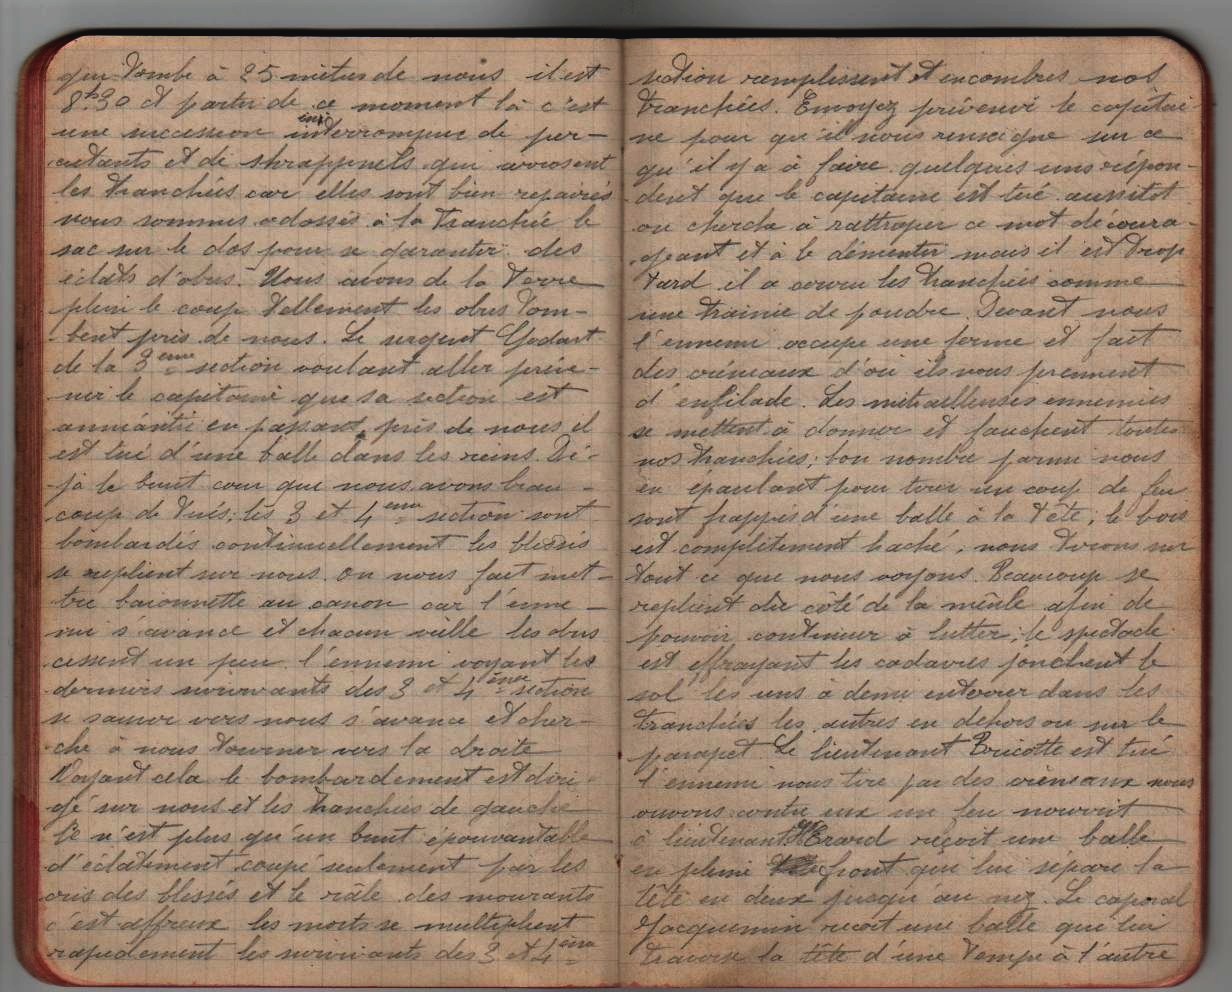 qui tombe à 25 mètres de nous il est
8h30 et partir de ce moment là c'est
une sucession ininterrompue de per-
cutants et de shrappnels qui arrosent
les tranchées car elles sont bien repairées
nous sommes adossés à la tranchée le
sac sur le dos pour se garantir des
éclats d'obus. Nous avons de la terre
plein le coup tellement les obus tom-
bent près de nous. Le sergent Godart
de la 3ème section voulant aller préve-
nir le capitaine que sa section est
anniantie en passant près de nous il
est tué d'une balle dans les reins. Dé-
jà le bruit cour que nous avons beau-
coup de tués; les 3 et 4ème section sont
bombardés continuellement les blessés
se replient sur nous. on nous fait met-
tre baionnette au canon car l'enne-
mi s'avance et chacun veille les obus
cessent un peu. l'ennemi voyant les
derniers survivants des 3 et 4ème section
se sauver vers nous s'avance et cher-
che à nous tourner vers la droite
Voyant cela le bombardement est diri-
gé sur nous et les tranchées de gauche
Ce n'est plus qu'un bruit épouvantable
d'éclatement coupé seulement par les
cris des blessés et le râle des mourants
c'est affreux les morts se multiplient
rapidement les survivants des 3 et 4ème
section remplissent et encombres nos
tranchées. Envoyez prévenir le capitai-
ne pour qu'il nous renseigne sur ce
qu'il y a à faire. quelques uns répon-
dent que le capitaine est tué aussitot
on cherche à rattraper ce mot découra-
geant et à le démentir mais il est trop
tard il a couru les tranchées comme
une trainie de poudre. Devant nous
l'ennemi occupe une ferme et fait
des créneaux d'où ils nous prennent
d'enfilade. Les mitrailleuses ennemies
se mettent à donner et fauchent toutes
nos tranchées; bon nombre parmi nous
en épaulant pour tirer un coup de feu
sont frappés d'une balle à la tête; le bois
est complètement haché, nous tirons sur
tout ce que nous voyons. Beaucoup se
replient du côté de la mêlée afin de
pouvoir continuer à lutter; le spectacle
est effrayant les cadavres jonchent le
sol les uns à demi enterrer dans les
tranchées les autres en dehors ou sur le
parapet. Le lieutenant Bricotte est tué
l'ennemi nous tire par des créneaux nous
ouvrons contre eux un feu nourrit
le lieutenant Erard reçoit une balle
en plein front qui lui sépare la
tête en deux jusqu'au nez. Le caporal
Jacquemin recoit une balle qui lui
traverse la tête d'une tempe à l'autre